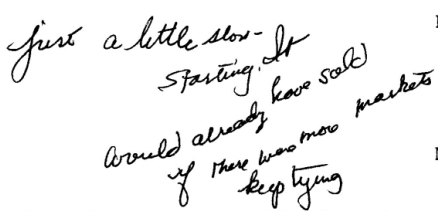 just a little slow-
starting. It
would already have sold
if there was more markets
keep trying